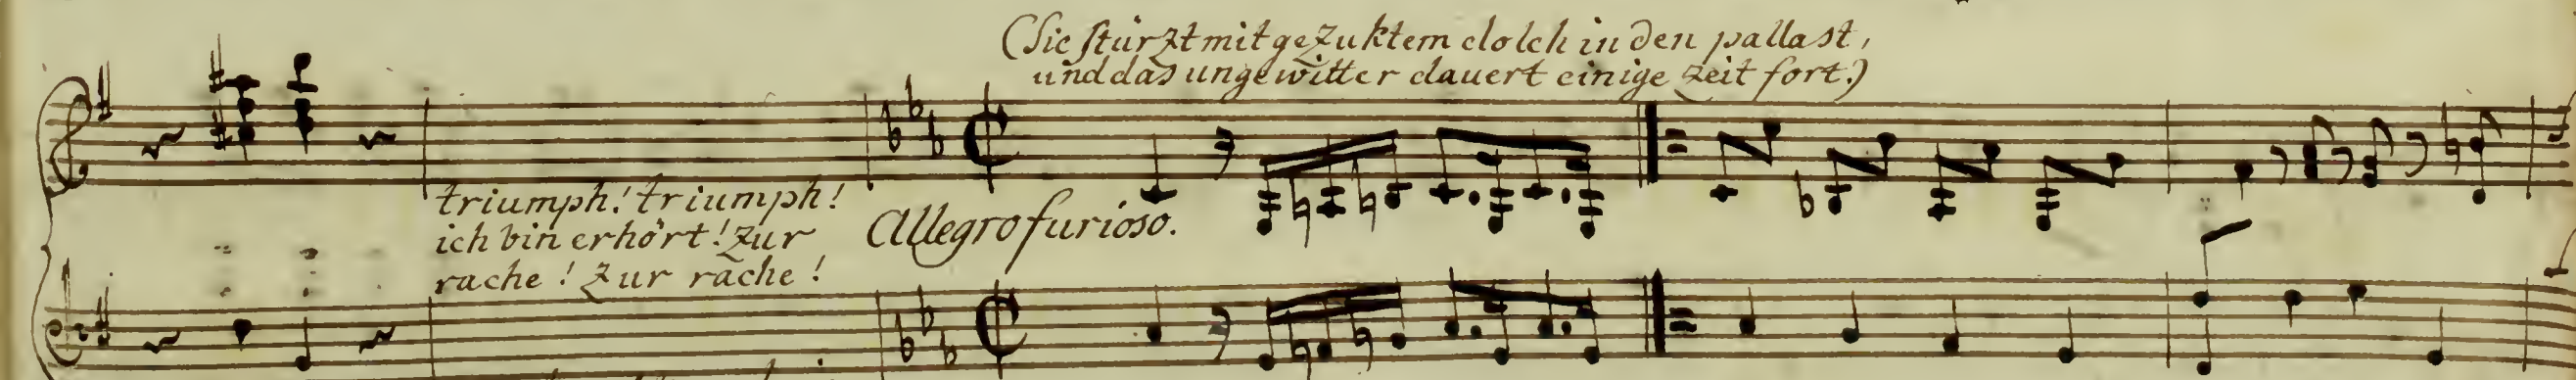 (Sie stürzt mit gezuktem dolch in den pallast,
und das ungewitter dauert einige zeit fort.)
triumph! triumph!
ich bin erhört! zur
rache! zur rache!
Allegro furioso.